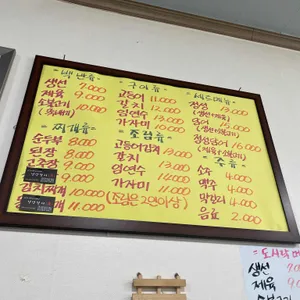 백반류
생선 7.000
제육 9.000
소불고기 10.000
찌개류
순두부 8.000
된장 8.000
김치찌개 10.000
11.000
구이류
고등어 11.000
갈치 13.000
임연수 13.000
가자미 11.000
조림류
고등어김치 13.000
갈치 13.000
임연수 14.000
가자미 11.000
(조림은 2인이상)
세트메뉴
정성 13.000
(생선+제육)
덤이 15.000
정성덤이 16.000
주류
소주 4.000
맥주 4.000
막걸리 4.000
음료 2.000
생선
제육